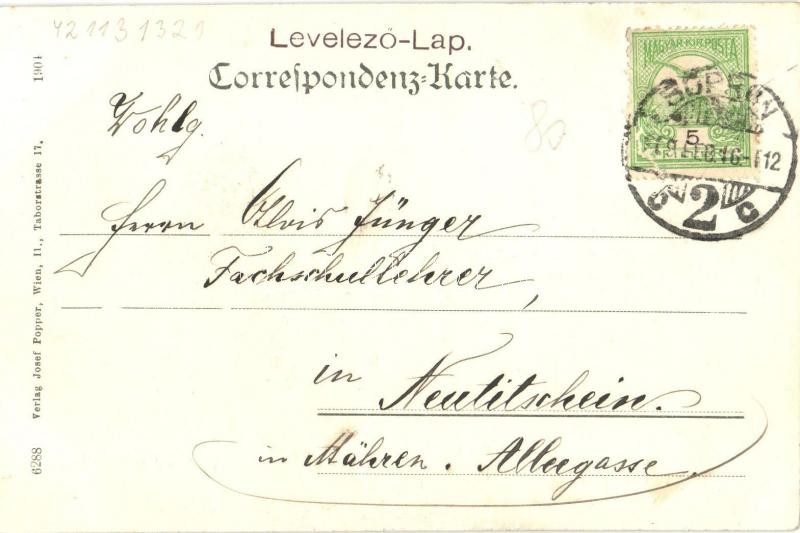 4211131321
Levelező-Lap.
Correspondenz-Karte.
MAGYAR KIR. POSTA
SOPRON
5
12
2 C
80
Wohlg.
Herrn Alois Jünger
Fachschullehrer,
in Neutitschein.
in Mähren. Alleegasse.
6288 Verlag Josef Popper, Wien, II., Taborstrasse 17. 1904